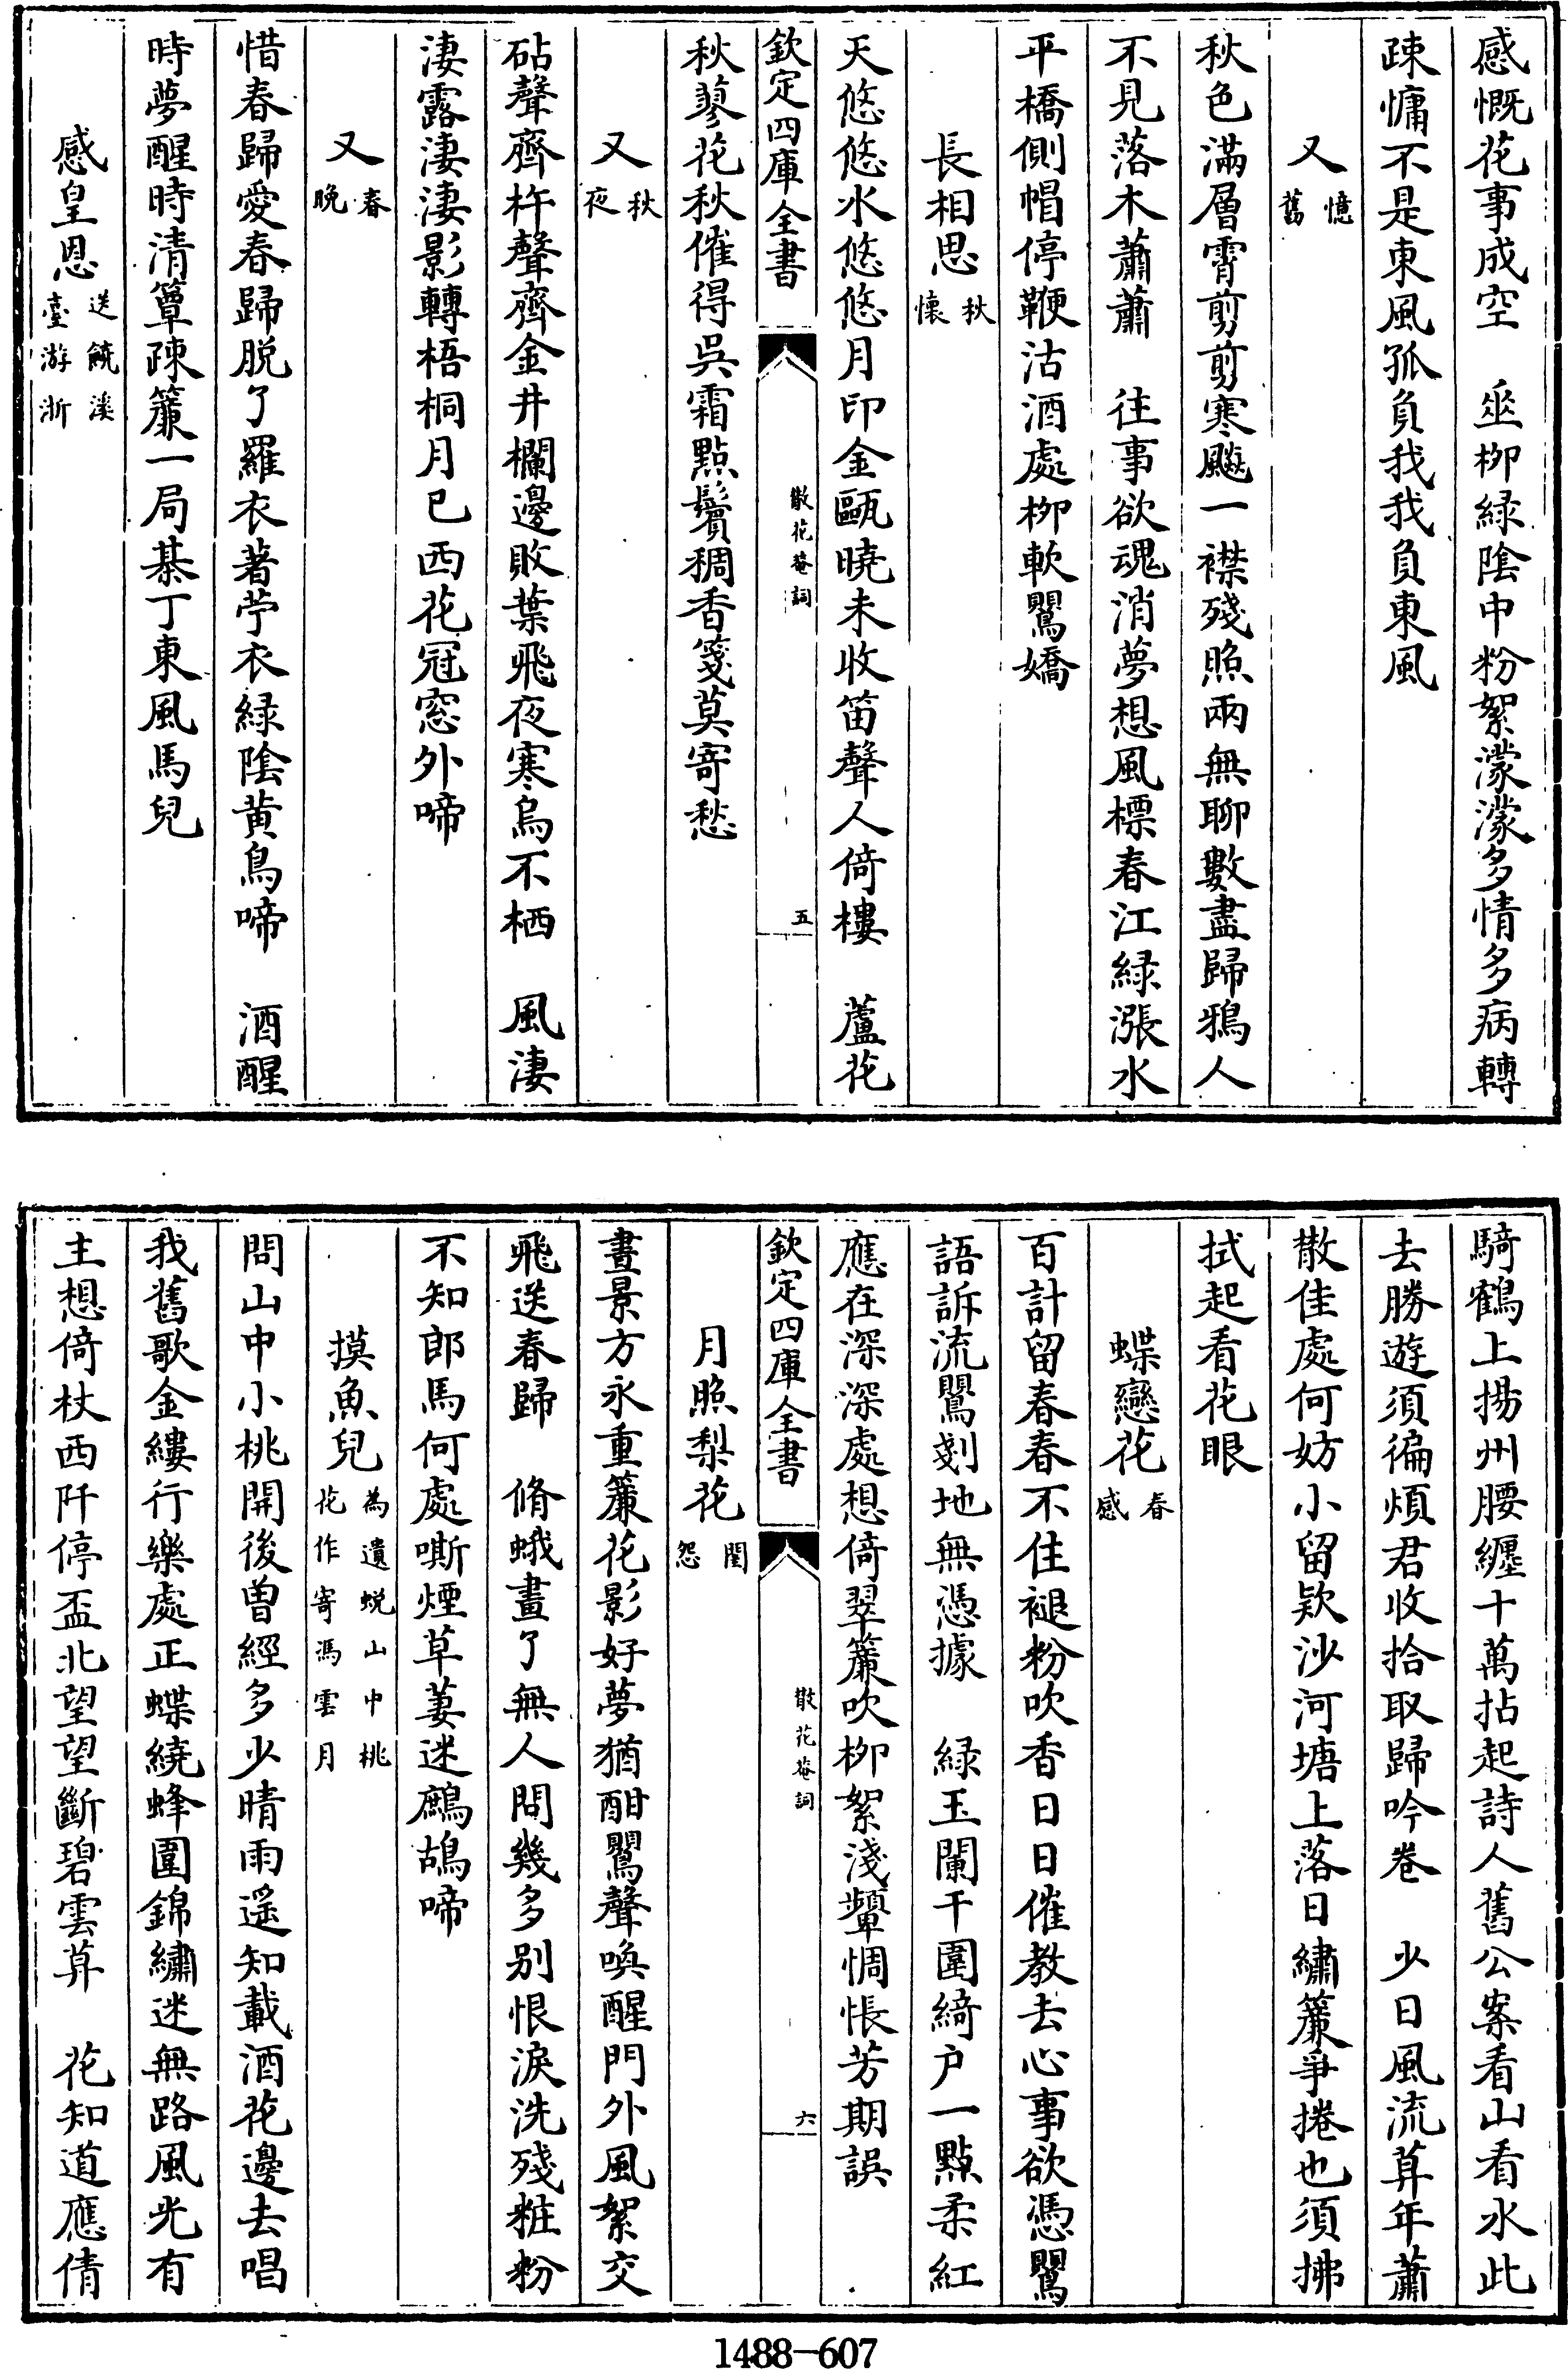 感慨花事成空　坐柳緑陰中粉絮濛濛多情多病轉
疎慵不是東風孤負我我負東風
又憶舊
秋色滿層霄剪剪寒飈一襟殘照兩無聊數盡歸鴉人
不見落木蕭蕭　往事欲魂消夢想風標春江緑漲水
平橋側帽停鞭沽酒處柳軟鶯嬌
長相思秋懷
天悠悠水悠悠月印金甌曉未收笛聲人倚樓　蘆花
欽定四庫全書
散花菴詞
五
秋蓼花秋催得吳霜點鬢稠香箋莫寄愁
又秋夜
砧聲齊杵聲齊金井欄邊敗葉飛夜寒烏不栖　風淒
淒露淒淒影轉梧桐月已西花冠窓外啼
又春晚
惜春歸愛春歸脱了羅衣著苧衣緑陰黄鳥啼　酒醒
時夢醒時清簟疎簾一局棊丁東風馬兒
感皇恩送饒溪臺游浙
騎鶴上揚州腰纏十萬拈起詩人舊公案看山看水此
去勝遊須徧煩君收拾取歸吟卷　少日風流暮年蕭
散佳處何妨小留欵沙河塘上落日繡簾爭捲也須拂
拭起看花眼
蝶戀花春感
百計留春春不住褪粉吹香日日催教去心事欲憑鶯
語訴流鶯剗地無憑據　緑玉闌干圍綺户一點柔紅
應在深深處想倚翠簾吹柳絮淺顰惆悵芳期誤
欽定四庫全書
散花菴詞
六
月照梨花閨怨
晝景方永重簾花影好夢猶酣鶯聲喚醒門外風絮交
飛送春歸　脩蛾畫了無人問幾多别恨淚洗殘粧粉
不知郎馬何處嘶煙草萋迷鷓鴣啼
摸魚兒為遺蜕山中桃花作寄馮雲月
問山中小桃開後曾經多少晴雨遥知載酒花邊去唱
我舊歌金縷行樂處正蝶繞蜂圍錦繡迷無路風光有
主想倚杖西阡停盃北望望斷碧雲暮　花知道應倩
1488—607